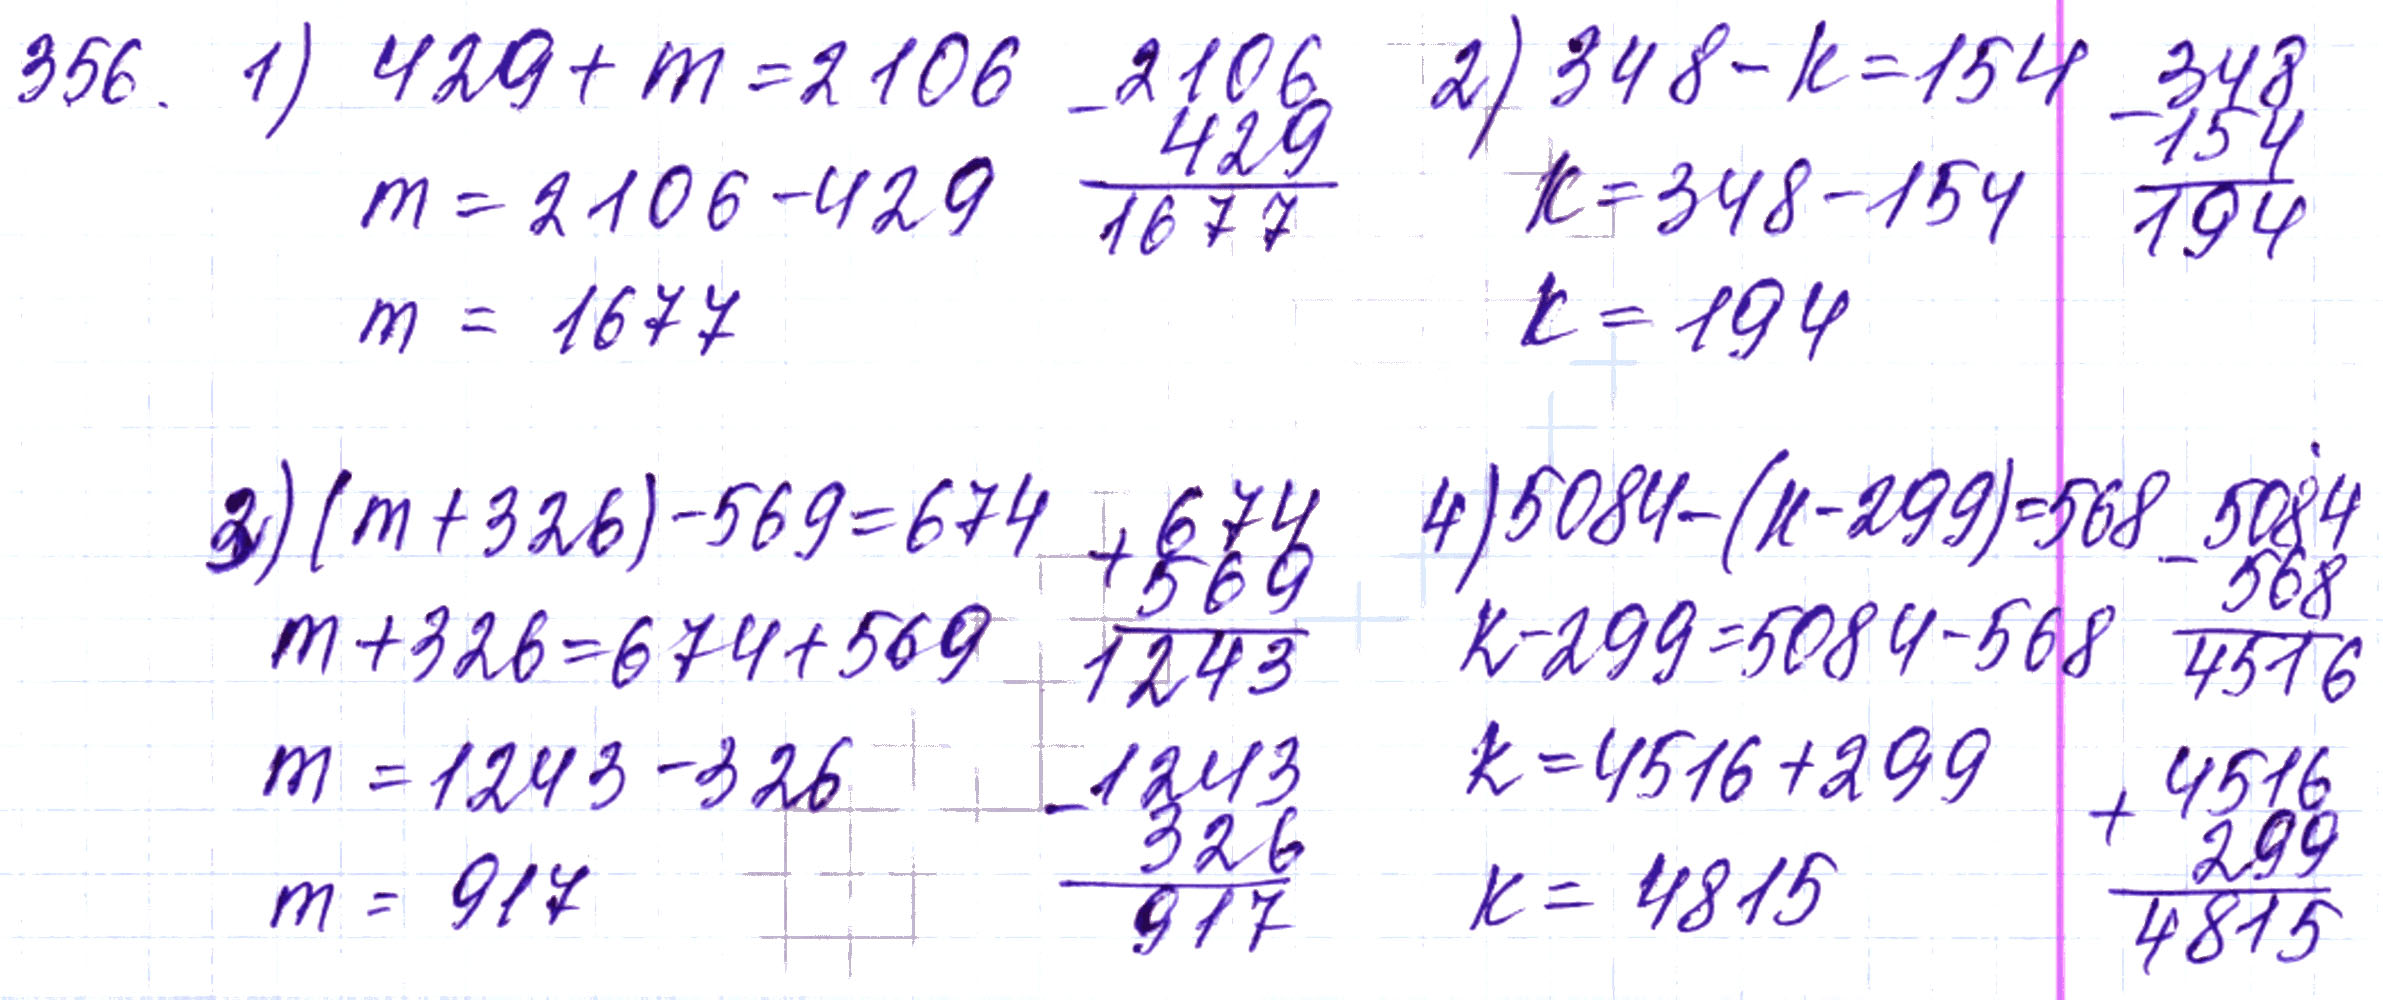 356. 1) 429 + m = 2106
m = 2106 - 429
m = 1677
- 2106
429
1677
2) 348 - k = 154
k = 348 - 154
k = 194
- 348
154
194
3) (m + 326) - 569 = 674
m + 326 = 674 + 569
m = 1243 - 326
m = 917
+ 674
569
1243
- 1243
326
917
4) 5084 - (k - 299) = 568
k - 299 = 5084 - 568
k = 4516 + 299
k = 4815
- 5084
568
4516
+ 4516
299
4815